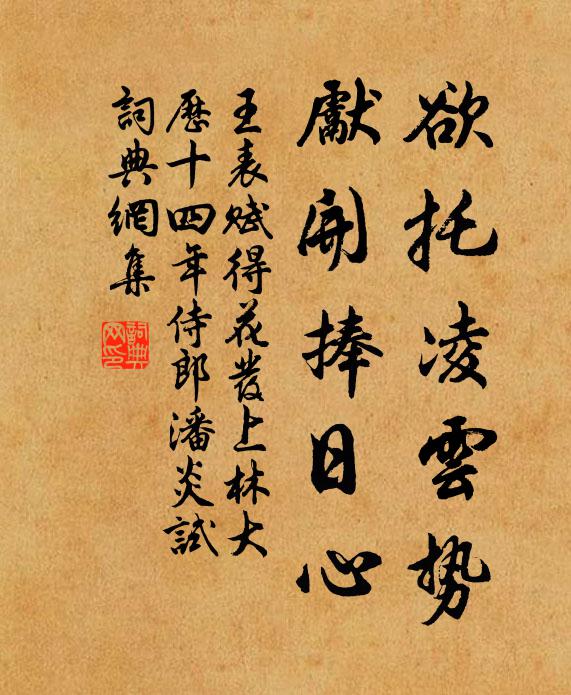 欲托凌雲势
獻開捧日心
王表赋得花發上林大
歷十四年侍郎潘炎試
詞典網集
詞典
网印